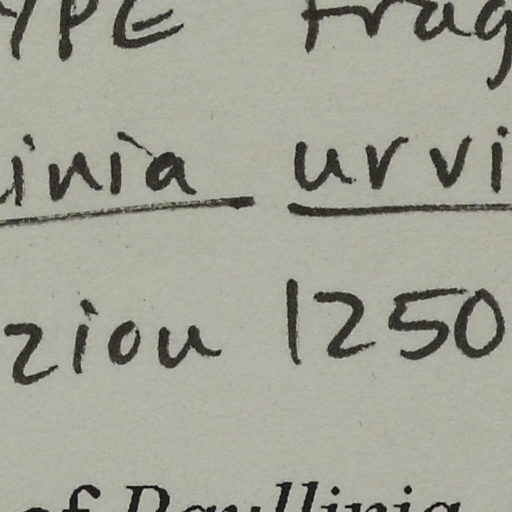 YPE frag
inia urvi
ziou 1250
of Paullinia